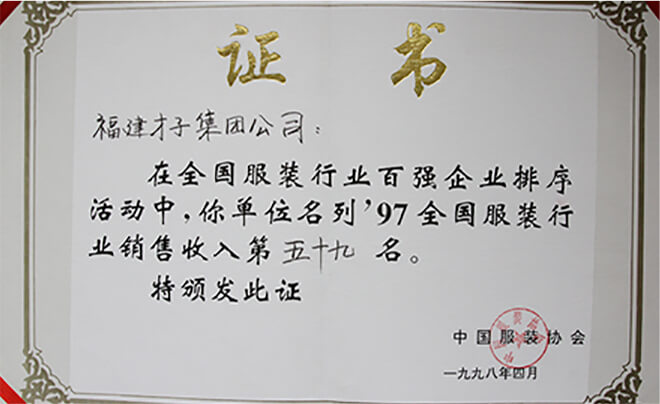 证书
福建才子集团公司：
在全国服装行业百强企业排序
活动中，你单位名列'97全国服装行
业销售收入第五十九名。
特颁发此证
中国服装协会
一九九八年四月